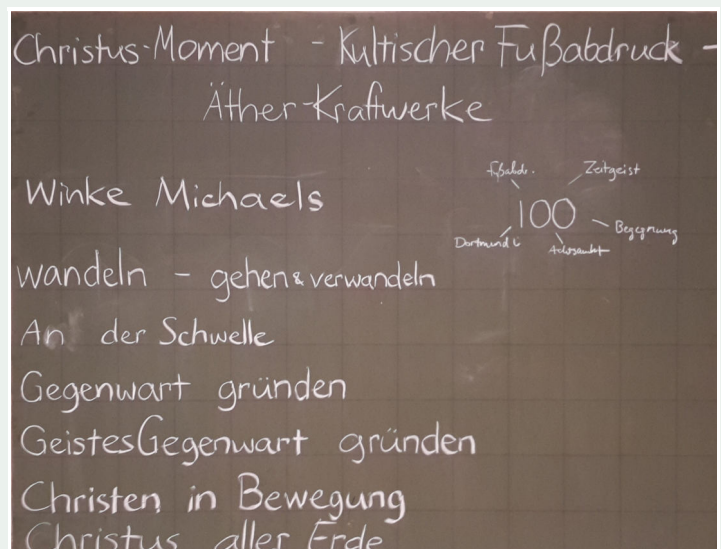 Christus-Moment - Kultischer Fußabdruck -
Äther-Kraftwerke
Winke Michaels
Fßabdr.
Zeitgeist
100
Begegnung
Dortmund
Achtsamkt
wandeln - gehen & verwandeln
An der Schwelle
Gegenwart gründen
GeistesGegenwart gründen
Christen in Bewegung
Christus aller Erde